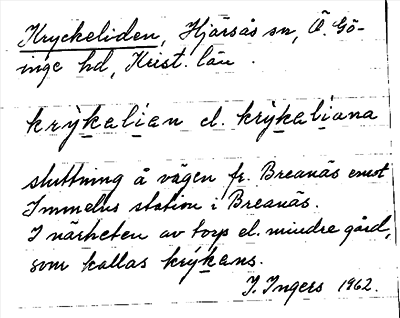 Kryckeliden, Hjärsås sn, Ö. Gö-
inge hd, Krist. län.
krỳkalian el. krỳkaliana
sluttning å vägen fr. Breanäs emot
Immelns station i Breanäs.
I närheten av torp el. mindre gård,
som kallas krýkans.
I. Ingers 1962.